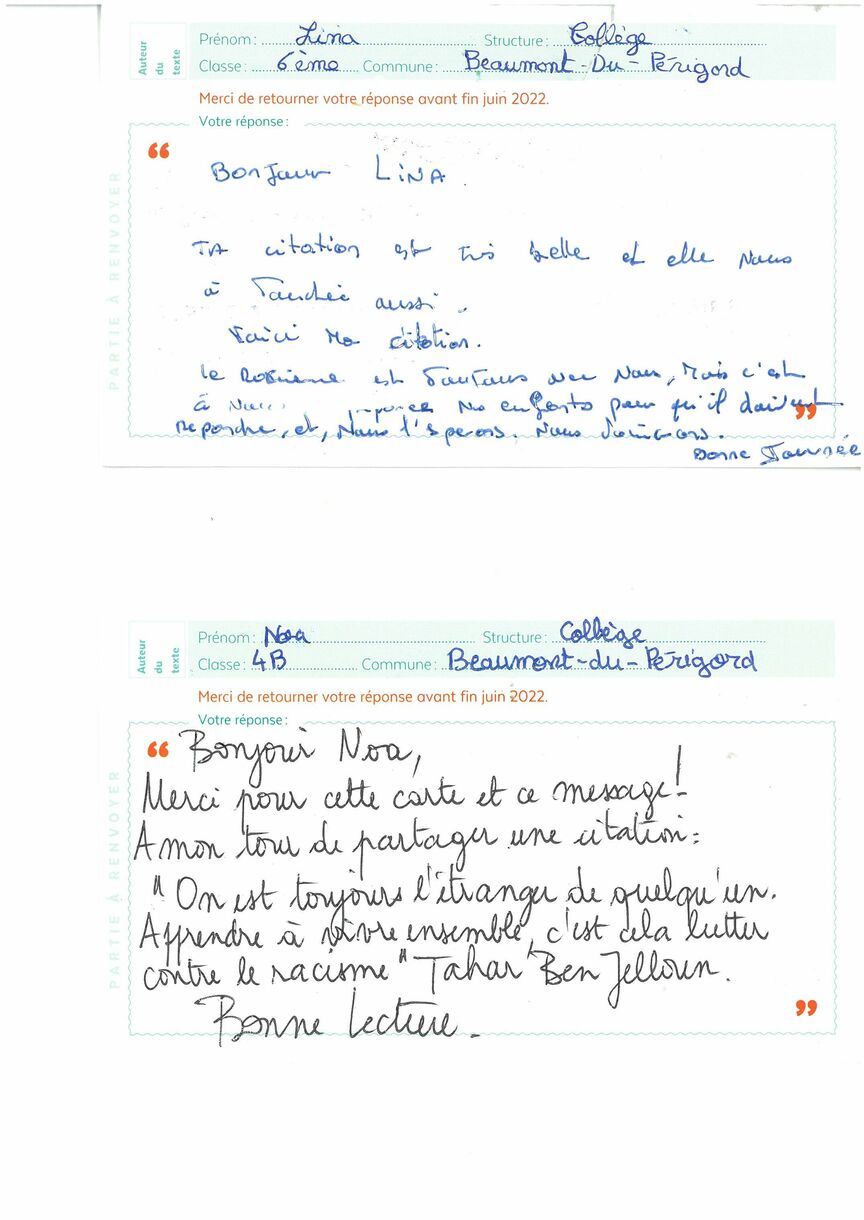 Auteur du texte
Prénom : Lina Structure : Collège
Classe : 6ème Commune : Beaumont-Du-Périgord
Merci de retourner votre réponse avant fin juin 2022.
Votre réponse :
PARTIE À RENVOYER
“
Bonjour LiNA
TA citation est très belle et elle Nous
à Touchée aussi.
Voici Ma citation.
Le Racisme est Toujours avec Nous, Mais c'est
à Nous No enfants pour qu'il doivent
Repondre, et, Nous l'esperons. Nous
”
Bonne Journée
Auteur du texte
Prénom : Noa Structure : Collège
Classe : 4B Commune : Beaumont-du-Périgord
Merci de retourner votre réponse avant fin juin 2022.
Votre réponse :
PARTIE À RENVOYER
“ Bonjour Noa,
Merci pour cette carte et ce message!
A mon tour de partager une citation :
" On est toujours l'étranger de quelqu'un.
Apprendre à vivre ensemble, c'est cela lutter
contre le racisme " Tahar Ben Jelloun.
Bonne lecture.
”